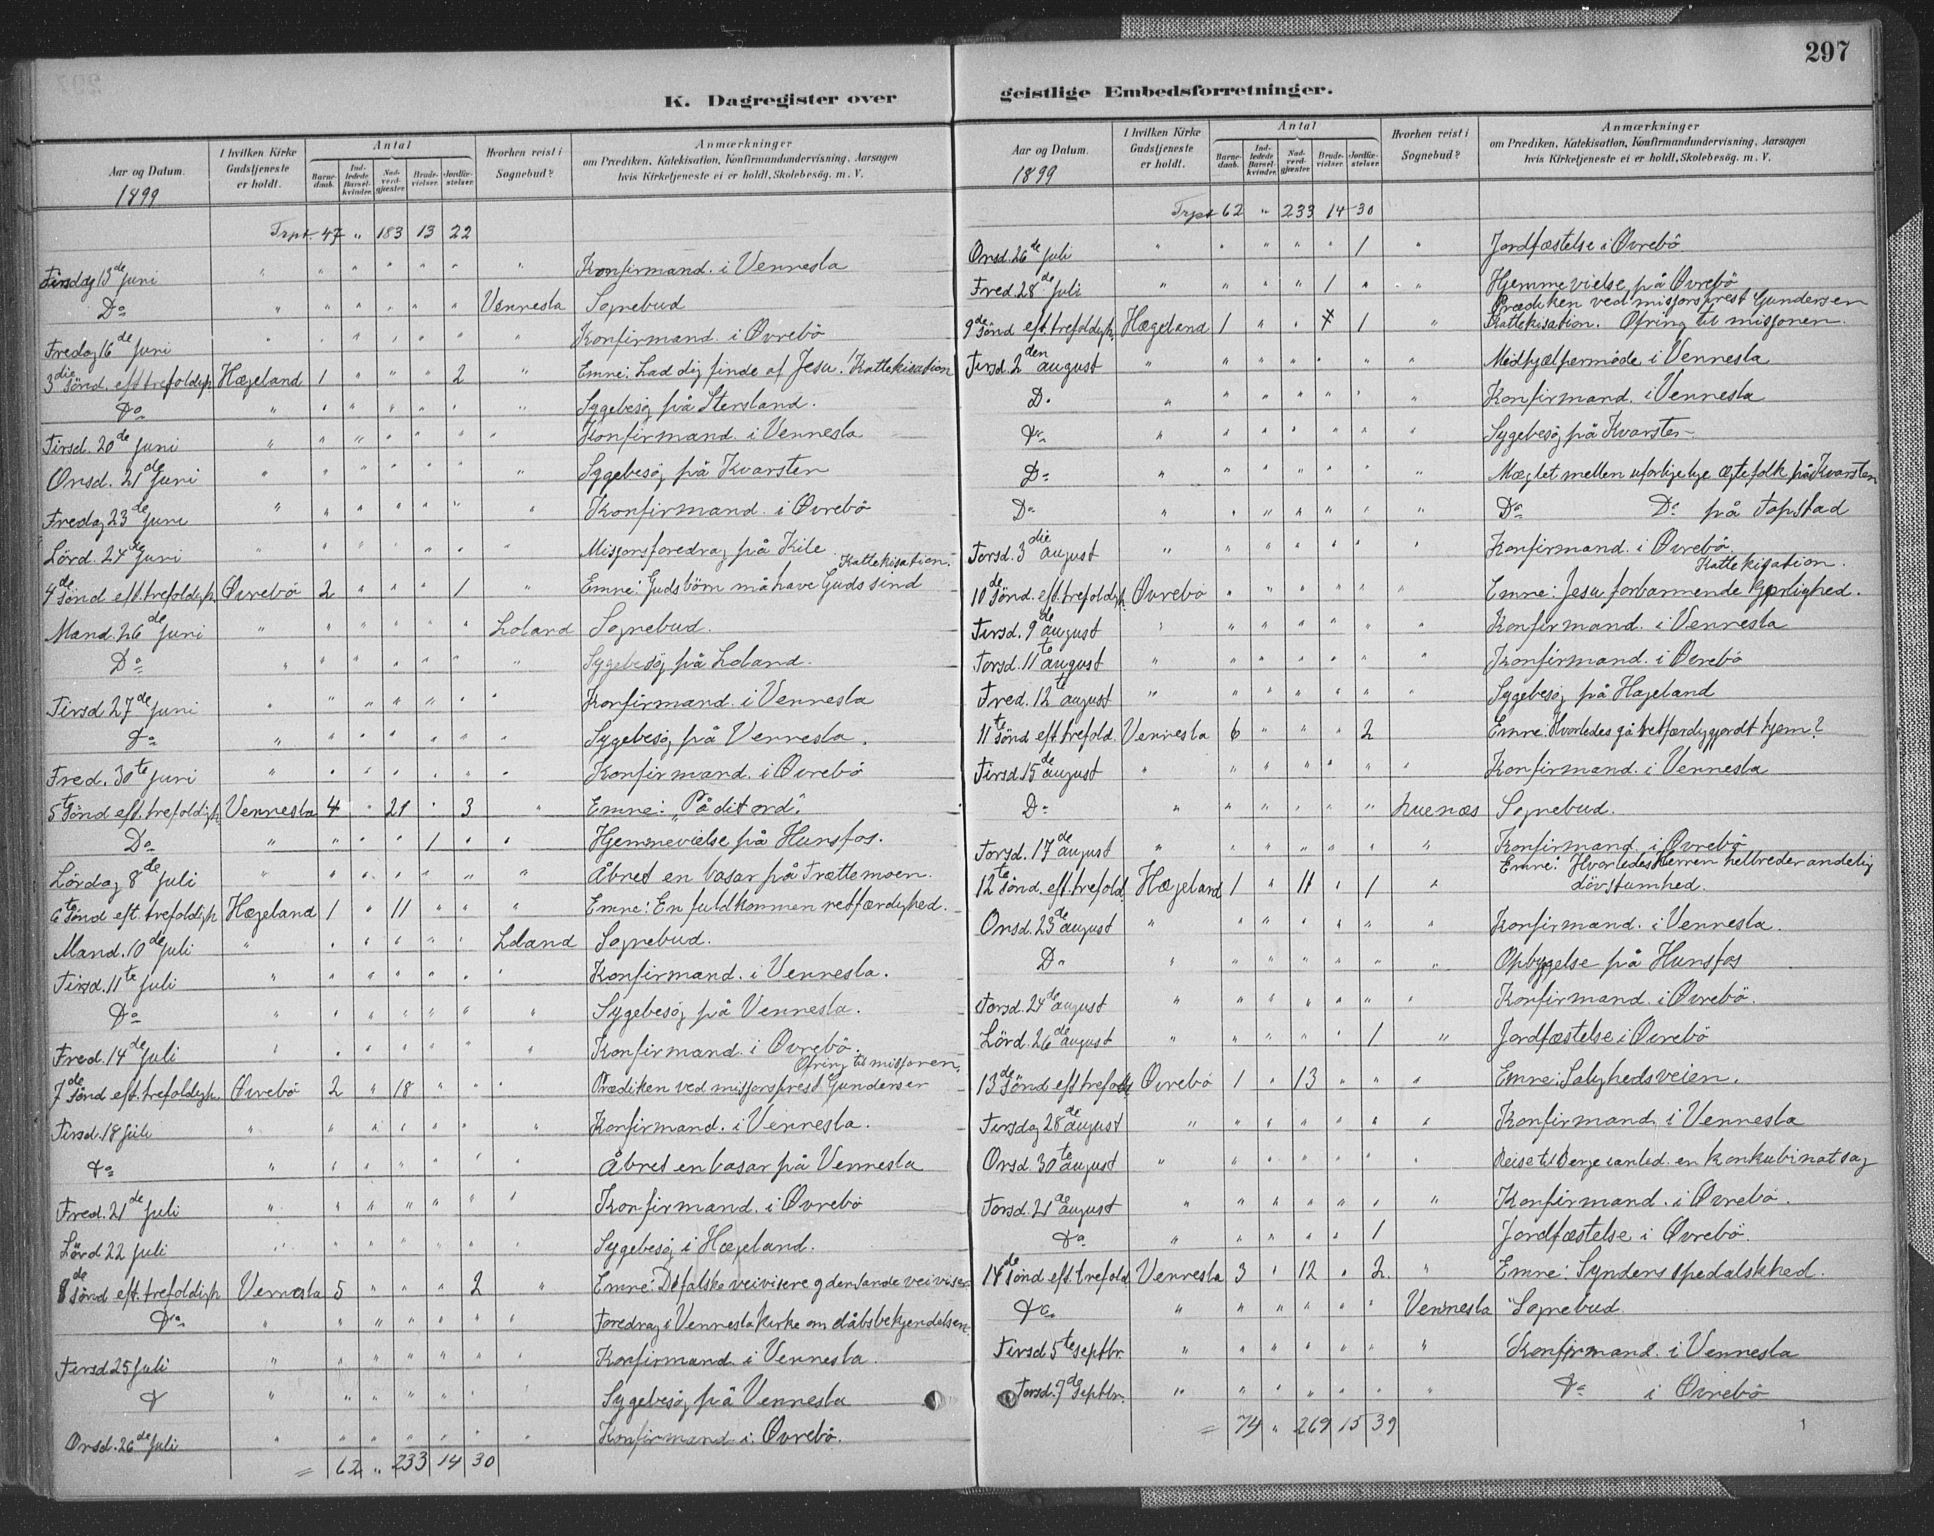 297
K. Dagregister over
Aar og Datum.
1899
I hvilken Kirke Gudstjeneste er holdt.
Antal
Barnedaab.
Indledede Barselkvinder.
Nadverdgjæster
Brudevielser.
Jordfæstelser
Hvorhen reist i Sognebud?
Anmærkninger
om Prædiken, Katekisation, Konfirmandundervisning, Aarsagen
hvis Kirketjeneste ei er holdt, Skolebesög. m. V.
Trpt. 47 " 183 13 22
Tirsdag 13de juni " " " " " " " Konfirmand. i Vennesla
Do " " " " " " Vennesla Sognebud
Fredag 16de juni " " " " " " " Konfirmand. i Øvrebö
3die sönd. eft. trefoldigh. Hægeland 1 " " " 2 " Emne: Lad dig finde af Jesu! Kattekisation
Do " " " " " " " Sygebesög på Stersland.
Tirsd. 20de juni " " " " " " " Konfirmand. i Vennesla
Onsd. 21de juni " " " " " " " Sygebesög på Kvarsten
Fredag 23de juni " " " " " " " Konfirmand. i Øvrebö
Lörd. 24de juni " " " " " " " Misjonsforedrag på Kile
Kattekisation.
4de sönd eft. trefoldigh. Øvrebö 2 " " " 1 " Emne: Guds börn må have Guds sind
Mand. 26de juni " " " " " " Loland Sognebud.
Do " " " " " " " Sygebesög på Loland.
Tirsd 27de juni " " " " " " " Konfirmand. i Vennesla
Do " " " " " " " Sygebesög på Vennesla.
Fred. 30te juni " " " " " " " Konfirmand. i Øvrebö
5te sönd eft. trefoldigh. Vennesla 4 " 21 " 3 " Emne: "På dit ord".
Do " " " " 1 " " Hjemmevielse på Hunsfos.
Lördag 8de juli " " " " " " " Åbnet en basar på Trættemoen.
6te sönd eft. trefoldigh Hægeland 1 " 11 " " " Emne: En fuldkommen retfærdighed.
Mand. 10de juli " " " " " " Loland Sognebud.
Tirsd. 11te juli " " " " " " " Konfirmand. i Vennesla.
Do " " " " " " " Sygebesög på Vennesla.
Fred. 14de juli " " " " " " " Konfirmand. i Øvrebö.
Ofring til misjonen.
7de sönd eft. trefoldigh. Øvrebö 2 " 18 " " " Prædiken ved misjonsprest Gundersen
Tirsd. 18 juli " " " " " " " Konfirmand. i Vennesla.
Do " " " " " " " Åbnet en basar på Vennesla
Fred. 21de juli " " " " " " " Konfirmand. i Øvrebö
Lörd 22 juli " " " " " " " Sygebesög i Hægeland.
8de sönd eft. trefoldigh Vennesla 5 " " " 2 " Emne: De falske veivisere og den sande veiviser
Do " " " " " " " Foredrag i Vennesla kirke om dåbsbekjendelsen.
Tirsd 25 juli " " " " " " " Konfirmand. i Vennesla.
D " " " " " " " Sygebesög på Vennesla
Onsd. 26de juli " " " " " " " Konfirmand i Øvrebö.
= 62 " 233 14 30
geistlige Embedsforretninger.
Aar og Datum.
1899
I hvilken Kirke Gudstjeneste er holdt.
Antal
Barnedaab.
Indledede Barselkvinder.
Nadverdgjæster
Brudevielser.
Jordfæstelser.
Hvorhen reist i Sognebud?
Anmærkninger
om Prædiken, Katekisation, Konfirmandundervisning, Aarsagen
hvis Kirketjeneste ei er holdt, Skolebesög. m. V.
Trpt 62 " 233 14 30
Onsd. 26de juli " " " " " 1 " Jordfæstelse i Øvrebö
Fred. 28de juli " " " " 1 " " Hjemmevielse på Øvrebö
Prædiken ved misjonsprest Gundersen
9de sönd eft. trefoldigh. Hægeland 1 " " 1 " Kattekisation. Ofring til misjonen.
Tirsd. 2den august " " " " " " " Medhjælpermöde i Vennesla
D. " " " " " " " Konfirmand. i Vennesla
Do " " " " " " " Sygebesög på Kvarsten
Do " " " " " " " Mæglet mellem uforligelige ægtefolk på Kvarsten
Do " " " " " " " Do Do på Fopstad
Torsd. 3die august " " " " " " " Konfirmand. i Øvrebö.
Kattekisation.
10de sönd. eft. trefoldigh. Øvrebö " " " " " " Emne: Jesu forbarmende kjærlighed.
Tirsd. 9de august " " " " " " " Konfirmand. i Vennesla
Torsd. 11te august " " " " " " " Konfirmand. i Øvrebö
Fred. 12te august " " " " " " " Sygebesög på Hageland
11te sönd eft. trefold. Vennesla 6 " " " 2 Emne: Hvorledes gå retfærdiggjordt hjem?
Tirsd 15de august " " " " " " " Konfirmand. i Vennesla
Do " " " " " " Sognebud.
Torsd. 17de august " " " " " " " Konfirmand. i Øvrebö
Emne: Hvorledes Herren helbreder åndelig
12te sönd. eft. trefold. Hægeland 1 " 11 " 1 " dövstumhed.
Onsd. 23de august " " " " " " " Konfirmand. i Vennesla.
Do " " " " " " " Opbyggelse på Hunsfos
Torsd. 24de august " " " " " " " Konfirmand. i Øvrebö.
Lörd. 26de august " " " " " 1 " Jordfæstelse i Øvrebö
13de sönd eft trefold Øvrebö 1 " 13 " " " Emne: Salighedsveien.
Tirsdag 28de august " " " " " " " Konfirmand. i Vennesla
Onsd 30te august " " " " " " " Reise til Berge i anled. en konkubinatsag
Torsd. 21de august " " " " " " " Konfirmand. i Øvrebö.
Do " " " " " 1 Jordfæstelse i Øvrebö.
14de sönd eft. trefold. Vennesla 3 " 12 " 2 " Emne: Syndens spedalskhed.
Do " " " " " " Vennesla Sognebud
Tirsd 5te septbr. " " " " " " " Konfirmand. i Vennesla
Torsd. 7de septbr. " " " " " " " Do i Øvrebö
= 74 " 269 15 39